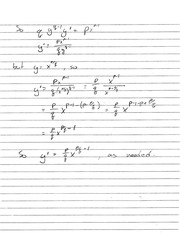 So q y^{q-1} y' = p x^{p-1}
y' = \frac{p x^{p-1}}{q y^{q-1}}
but y = x^{p/q}, so
y' = \frac{p x^{p-1}}{q (x^{p/q})^{q-1}} = \frac{p}{q} \frac{x^{p-1}}{x^{p-p/q}}
= \frac{p}{q} x^{p-1-(p-p/q)} = \frac{p}{q} x^{p-1-p+p/q}
= \frac{p}{q} x^{p/q-1}
So y' = \frac{p}{q} x^{p/q-1}, as needed.